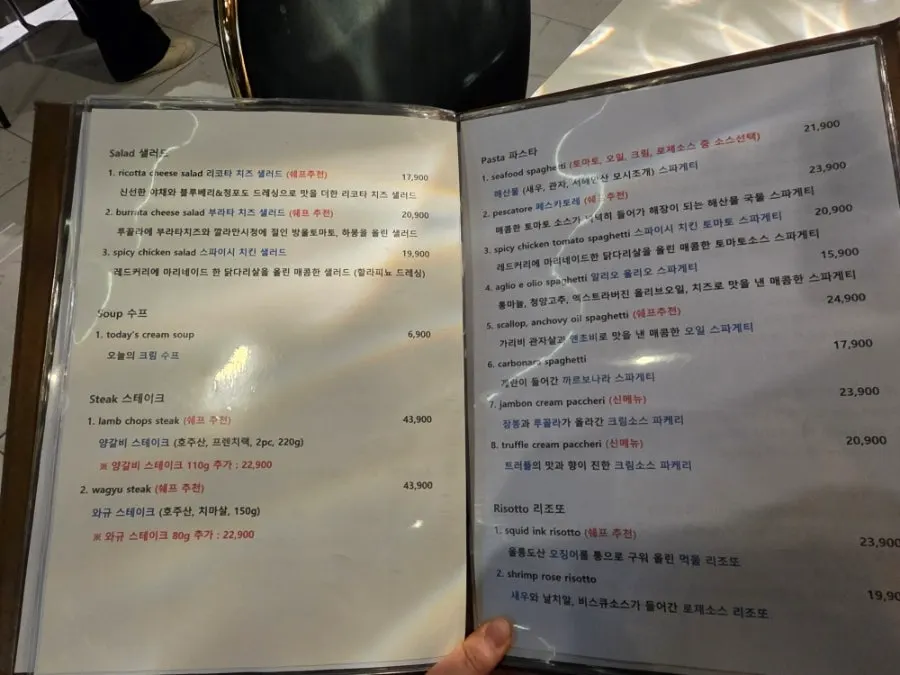 Salad 샐러드
1. ricotta cheese salad 리코타 치즈 샐러드 (쉐프추천) 17,900
신선한 야채와 블루베리&청포도 드레싱으로 맛을 더한 리코타 치즈 샐러드
2. burrata cheese salad 부라타 치즈 샐러드 (쉐프 추천) 20,900
루꼴라에 부라타치즈와 깔라만시청에 절인 방울토마토, 하몽을 올린 샐러드
3. spicy chicken salad 스파이시 치킨 샐러드 19,900
레드커리에 마리네이드 한 닭다리살을 올린 매콤한 샐러드 (할라피뇨 드레싱)
Soup 수프
1. today's cream soup 6,900
오늘의 크림 수프
Steak 스테이크
1. lamb chops steak (쉐프 추천) 43,900
양갈비 스테이크 (호주산, 프렌치랙, 2pc, 220g)
※ 양갈비 스테이크 110g 추가 : 22,900
2. wagyu steak (쉐프 추천) 43,900
와규 스테이크 (호주산, 치마살, 150g)
※ 와규 스테이크 80g 추가 : 22,900
Pasta 파스타
1. seafood spaghetti (토마토, 오일, 크림, 로제소스 중 소스선택) 21,900
해산물 (새우, 관자, 서해안산 모시조개) 스파게티
2. pescatore 페스카토레 (쉐프추천) 23,900
매콤한 토마토 소스가 넉넉히 들어가 해장이 되는 해산물 국물 스파게티
3. spicy chicken tomato spaghetti 스파이시 치킨 토마토 스파게티 20,900
레드커리에 마리네이드한 닭다리살을 올린 매콤한 토마토소스 스파게티
4. aglio e olio spaghetti 알리오 올리오 스파게티 15,900
통마늘, 청양고추, 엑스트라버진 올리브오일, 치즈로 맛을 낸 매콤한 스파게티
5. scallop, anchovy oil spaghetti (쉐프추천) 24,900
가리비 관자살과 엔초비로 맛을 낸 매콤한 오일 스파게티
6. carbonara spaghetti 17,900
계란이 들어간 까르보나라 스파게티
7. jambon cream paccheri (신메뉴) 23,900
잠봉과 루꼴라가 올라간 크림소스 파케리
8. truffle cream paccheri (신메뉴) 20,900
트러플의 맛과 향이 진한 크림소스 파케리
Risotto 리조또
1. squid ink risotto (쉐프 추천) 23,900
울릉도산 오징어를 통으로 구워 올린 먹물 리조또
2. shrimp rose risotto 19,90
새우와 날치알, 비스큐소스가 들어간 로제소스 리조또